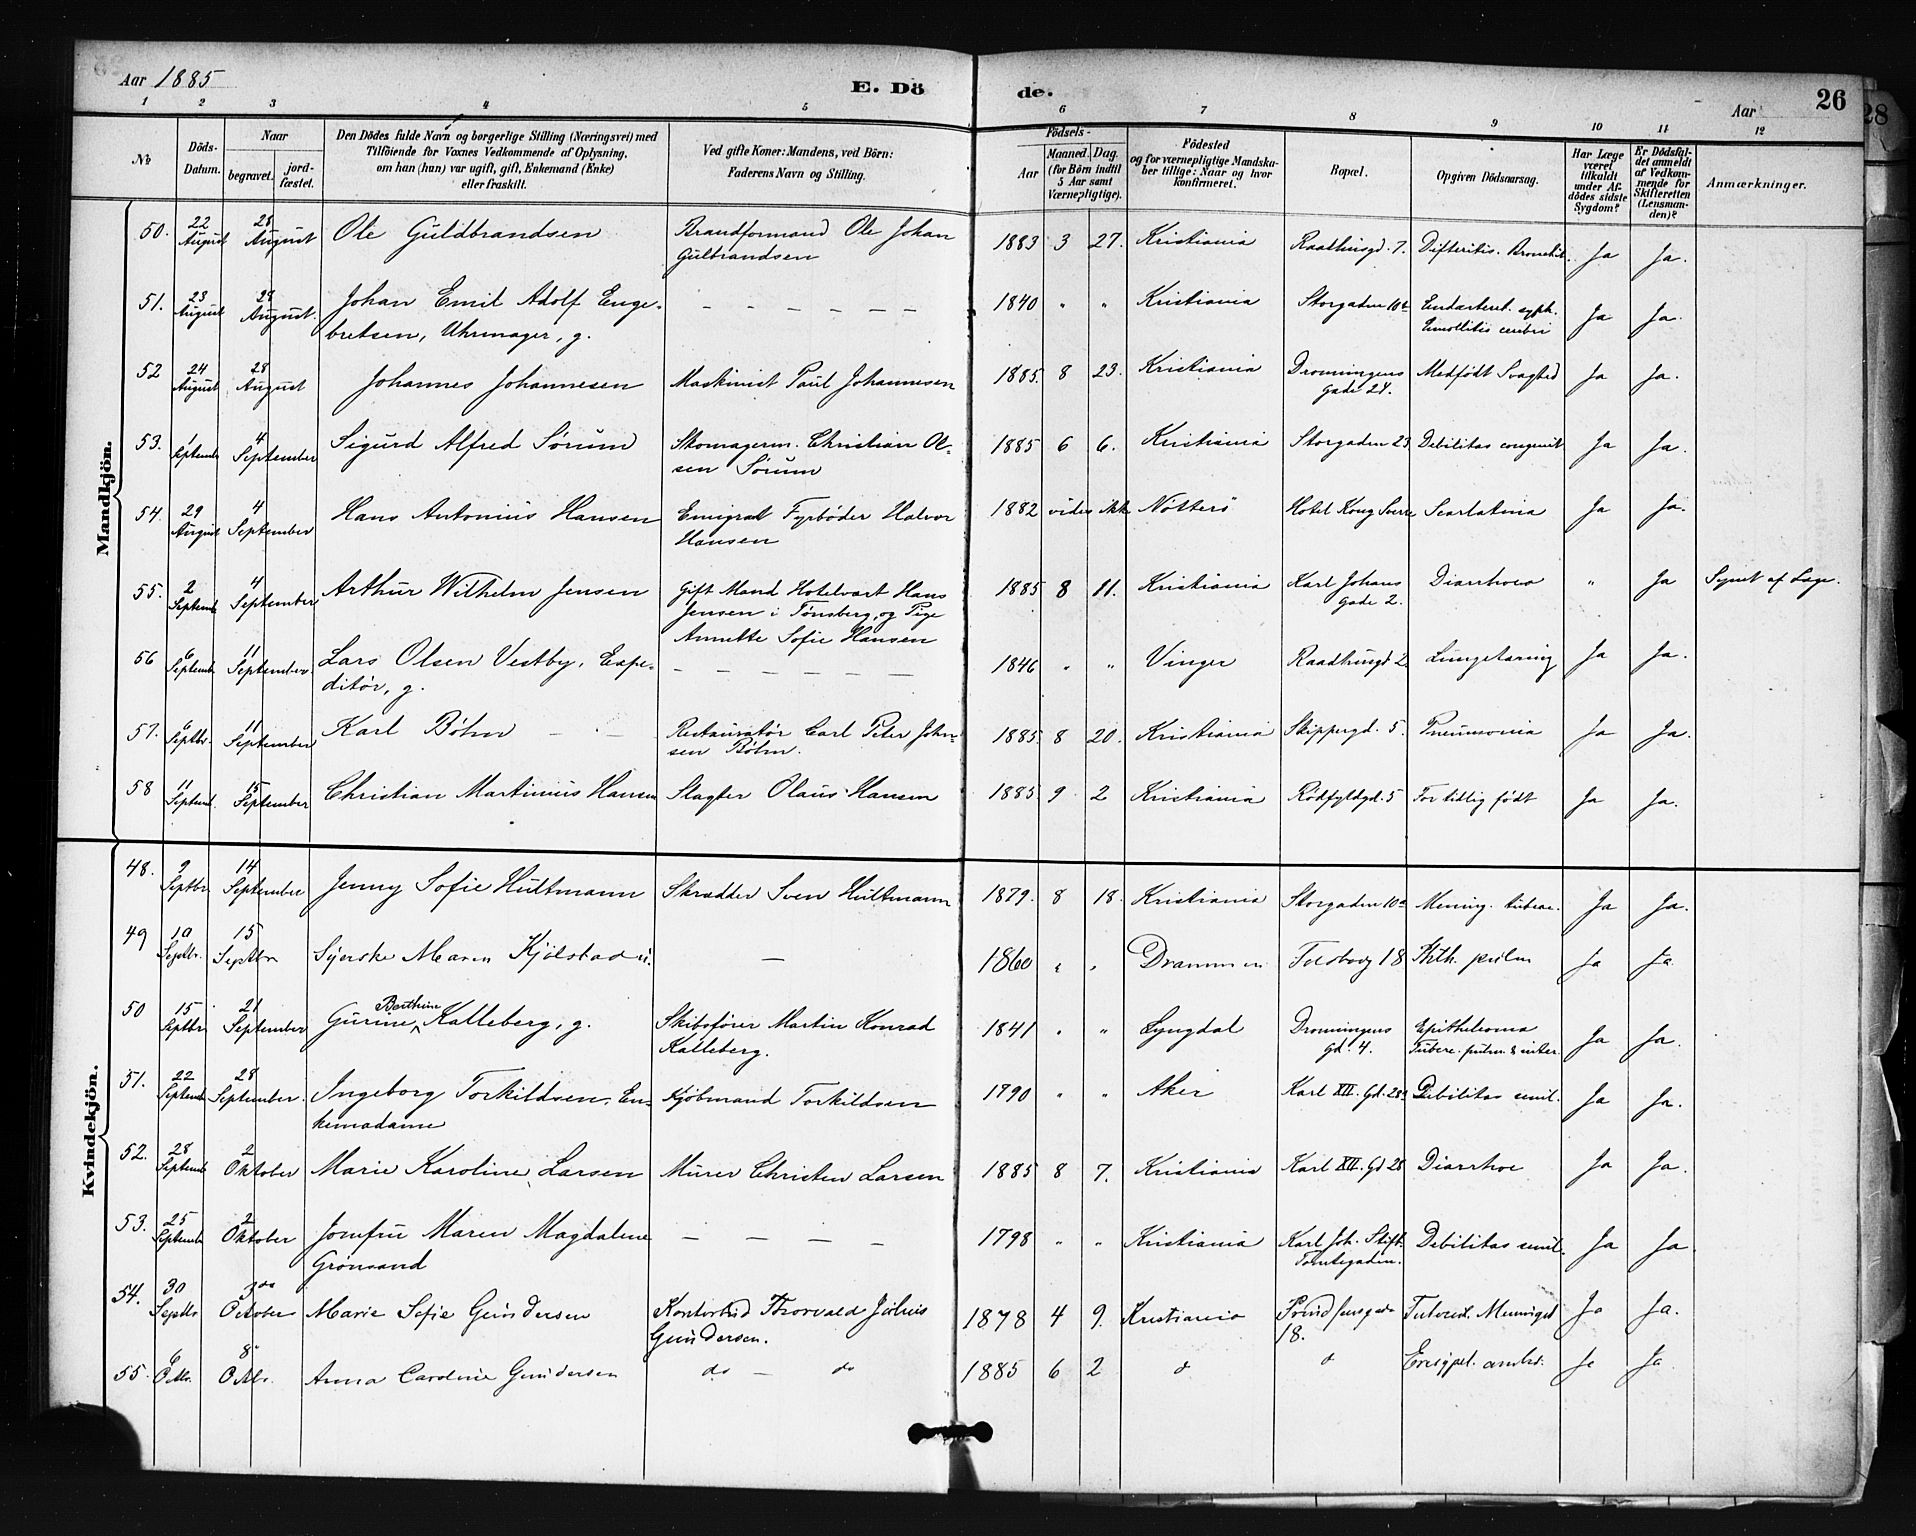 Aar 1885
E. Dö de.
Aar
26
28
1 2 3 4 5 6 7 8 9 10 11 12
No
Döds-Datum.
Naar
begravet.
jordfæstet.
Den Dödes fulde Navn og borgerlige Stilling (Næringsvei) med
Tilföiende for Voxnes Vedkommende af Oplysning,
om han (hun) var ugift, gift, Enkemand (Enke)
eller fraskilt.
Ved gifte Koner: Mandens, ved Börn:
Faderens Navn og Stilling.
Födsels-
Aar
Maaned. Dag.
(for Börn indtil
5 Aar samt
Værnepligtige).
Födested
og for værnepligtige Mandska-
ber tillige: Naar og hvor
konfirmeret.
Bopæl.
Opgiven Dödsaarsag.
Har Læge
været
tilkaldt
under Af-
dödes sidste
Sygdom?
Er Dödsfal-
det anmeldt
af Vedkom-
mende for
Skifteretten
(Lensman-
den)?
Anmærkninger.
Mandkjön.
50. 22 August 28 August Ole Guldbrandsen Brandformand Ole Johan Gulbrandsen 1883 3 27. Kristiania Raadhusgd. 7. Difteritis. Bronchit. Ja Ja.
51. 23 August 29 August. Johan Emil Adolf Enge-
bretsen, Uhrmager, g. — — — — — 1840 " " Kristiania Storgaden 10a Endarterit. syph. Emollitis cerebri Ja Ja.
52 24 August 28 August Johannes Johannesen Maskinist Paul Johannesen 1885. 8 23. Kristiania Dronningens Gade 24. Medfødt Svaghed Ja Ja.
53. 1 Septemb 4 September Sigurd Alfred Sørum Skomagerm. Christian Ol-
sen Sørum 1885 6 6. Kristiania Storgaden 23 Debilitas congenit Ja Ja.
54. 29 August 4 September Hans Antonius Hansen Emigrat Fyrbøder Halvor Hansen 1882 vides ikk Nötterö Hotel Kong Sverre Scarlatina Ja Ja.
55. 2 Septemb 4 September Arthur Wilhelm Jensen Gift Mand Hotelvært Hans
Jensen i Tønsberg, og Pige
Annette Sofie Hansen 1885 8 11. Kristiania Karl Johans Gade 2. Diarrhoea " Ja Synet af Læge.
56 6 Septemb 11 September. Lars Olsen Vestby, Expe-
ditør, g. — — — — — — 1846 " " Vinger Raadhusgd 2 Lungetæring Ja Ja.
57. 6 Septbr. 11 September Karl Bøhn — — Restauratør Carl Peter John-
sen Bøhn. 1885. 8 20. Kristiania Skippergd. 5. Pneumonia Ja Ja.
58 11 Septemb. 15 September Christian Martinius Hansen Slagter Olaus Hansen 1885 9 2 Kristiania Rødfyldgd. 5 For tidlig født Ja Ja.
Kvindekjön.
48. 9 Septbr. 14 September Jenny Sofie Hultmann Skrædder Sven Hultmann 1879. 8 18. Kristiania Storgaden 10a Mening. tuberc. Ja Ja.
49 10 Septbr. 15 Septbr Syerske Maren Kjölstad u. — 1860 " " Drammen Toldbodg 18 Phth. pulm Ja Ja.
50 15 Septbr 21 September Gurine Berthine Kalleberg, g. Skibsfører Martin Konrad Kalleberg. 1841 " " Lyngdal Dronningens Gd. 4. Epithelioma Tuberc. pulm. & inter. Ja Ja.
51. 22 Septemb 28 September. Ingeborg Torkildsen, En-
kemadame Kjøbmand Torkildsen 1790 " " Aker Karl XII. Gd. 28a Debilitas senil. Ja Ja.
52. 28 Septemb 2 Oktober Marie Karoline Larsen Murer Christen Larsen 1885 8 7. Kristiania Karl XII. Gd 28 Diarrhoe Ja Ja.
53. 25 Septemb 2 Oktober Jomfru Maren Magdalene Grönsand — — — — 1798 " " Kristiania Karl Joh. Stift. Tomtegaden. Debilitas senil. Ja Ja
54. 30 Septbr 3die October Marie Sofie Gundersen Kontorbud Thorvald Julius Gundersen. 1878 4 9. Kristiania Prindsensgade 18. Tuberd. Meningit Ja Ja.
55. 6 Octbr. 8" Octbr. Anna Caroline Gundersen do — do 1885 6 2 d d Erisypel. ambs. Ja Ja